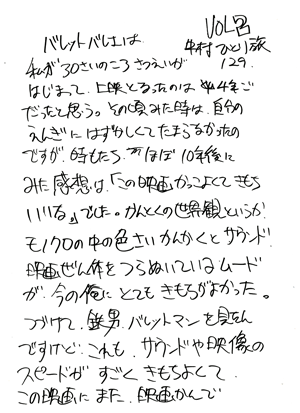 VOL
中村ひとり旅
129.
バレットバレエは
私が30さいのころさつえいが
はじまって、上映となったのは約4年ご
だったと思う。その頃みた時は、自分の
えんぎにはずかしくてたまらなかったの
ですが、時もたち、ほぼ10年後に
みた感想は「この映画かっこよくてきもち
いいな」でした。かんとくの世界観というか
モノクロの中の色さいかんかくとサウンド
映画ぜん体をつらぬいているムード
が、今の俺にとてもきもちがよかった。
つづけて、鉄男 バレットマンを見たん
ですけど、これも、サウンドや映像の
スピードが すごくきもちよくて
この映画にまた、映画かんで